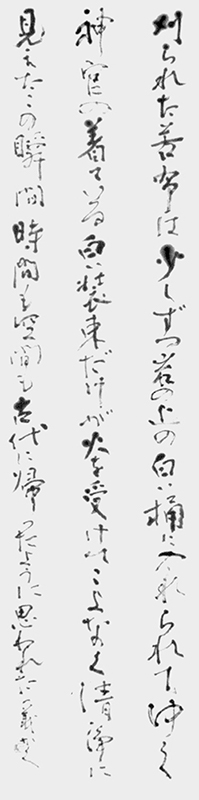 刈られた若布は少しずつ岩の上の白い桶に入れられてゆく
神官の着ている白い装束だけが火を受けてこよなく清浄に
見えたこの瞬間時間も空間も古代に帰ったように思われた